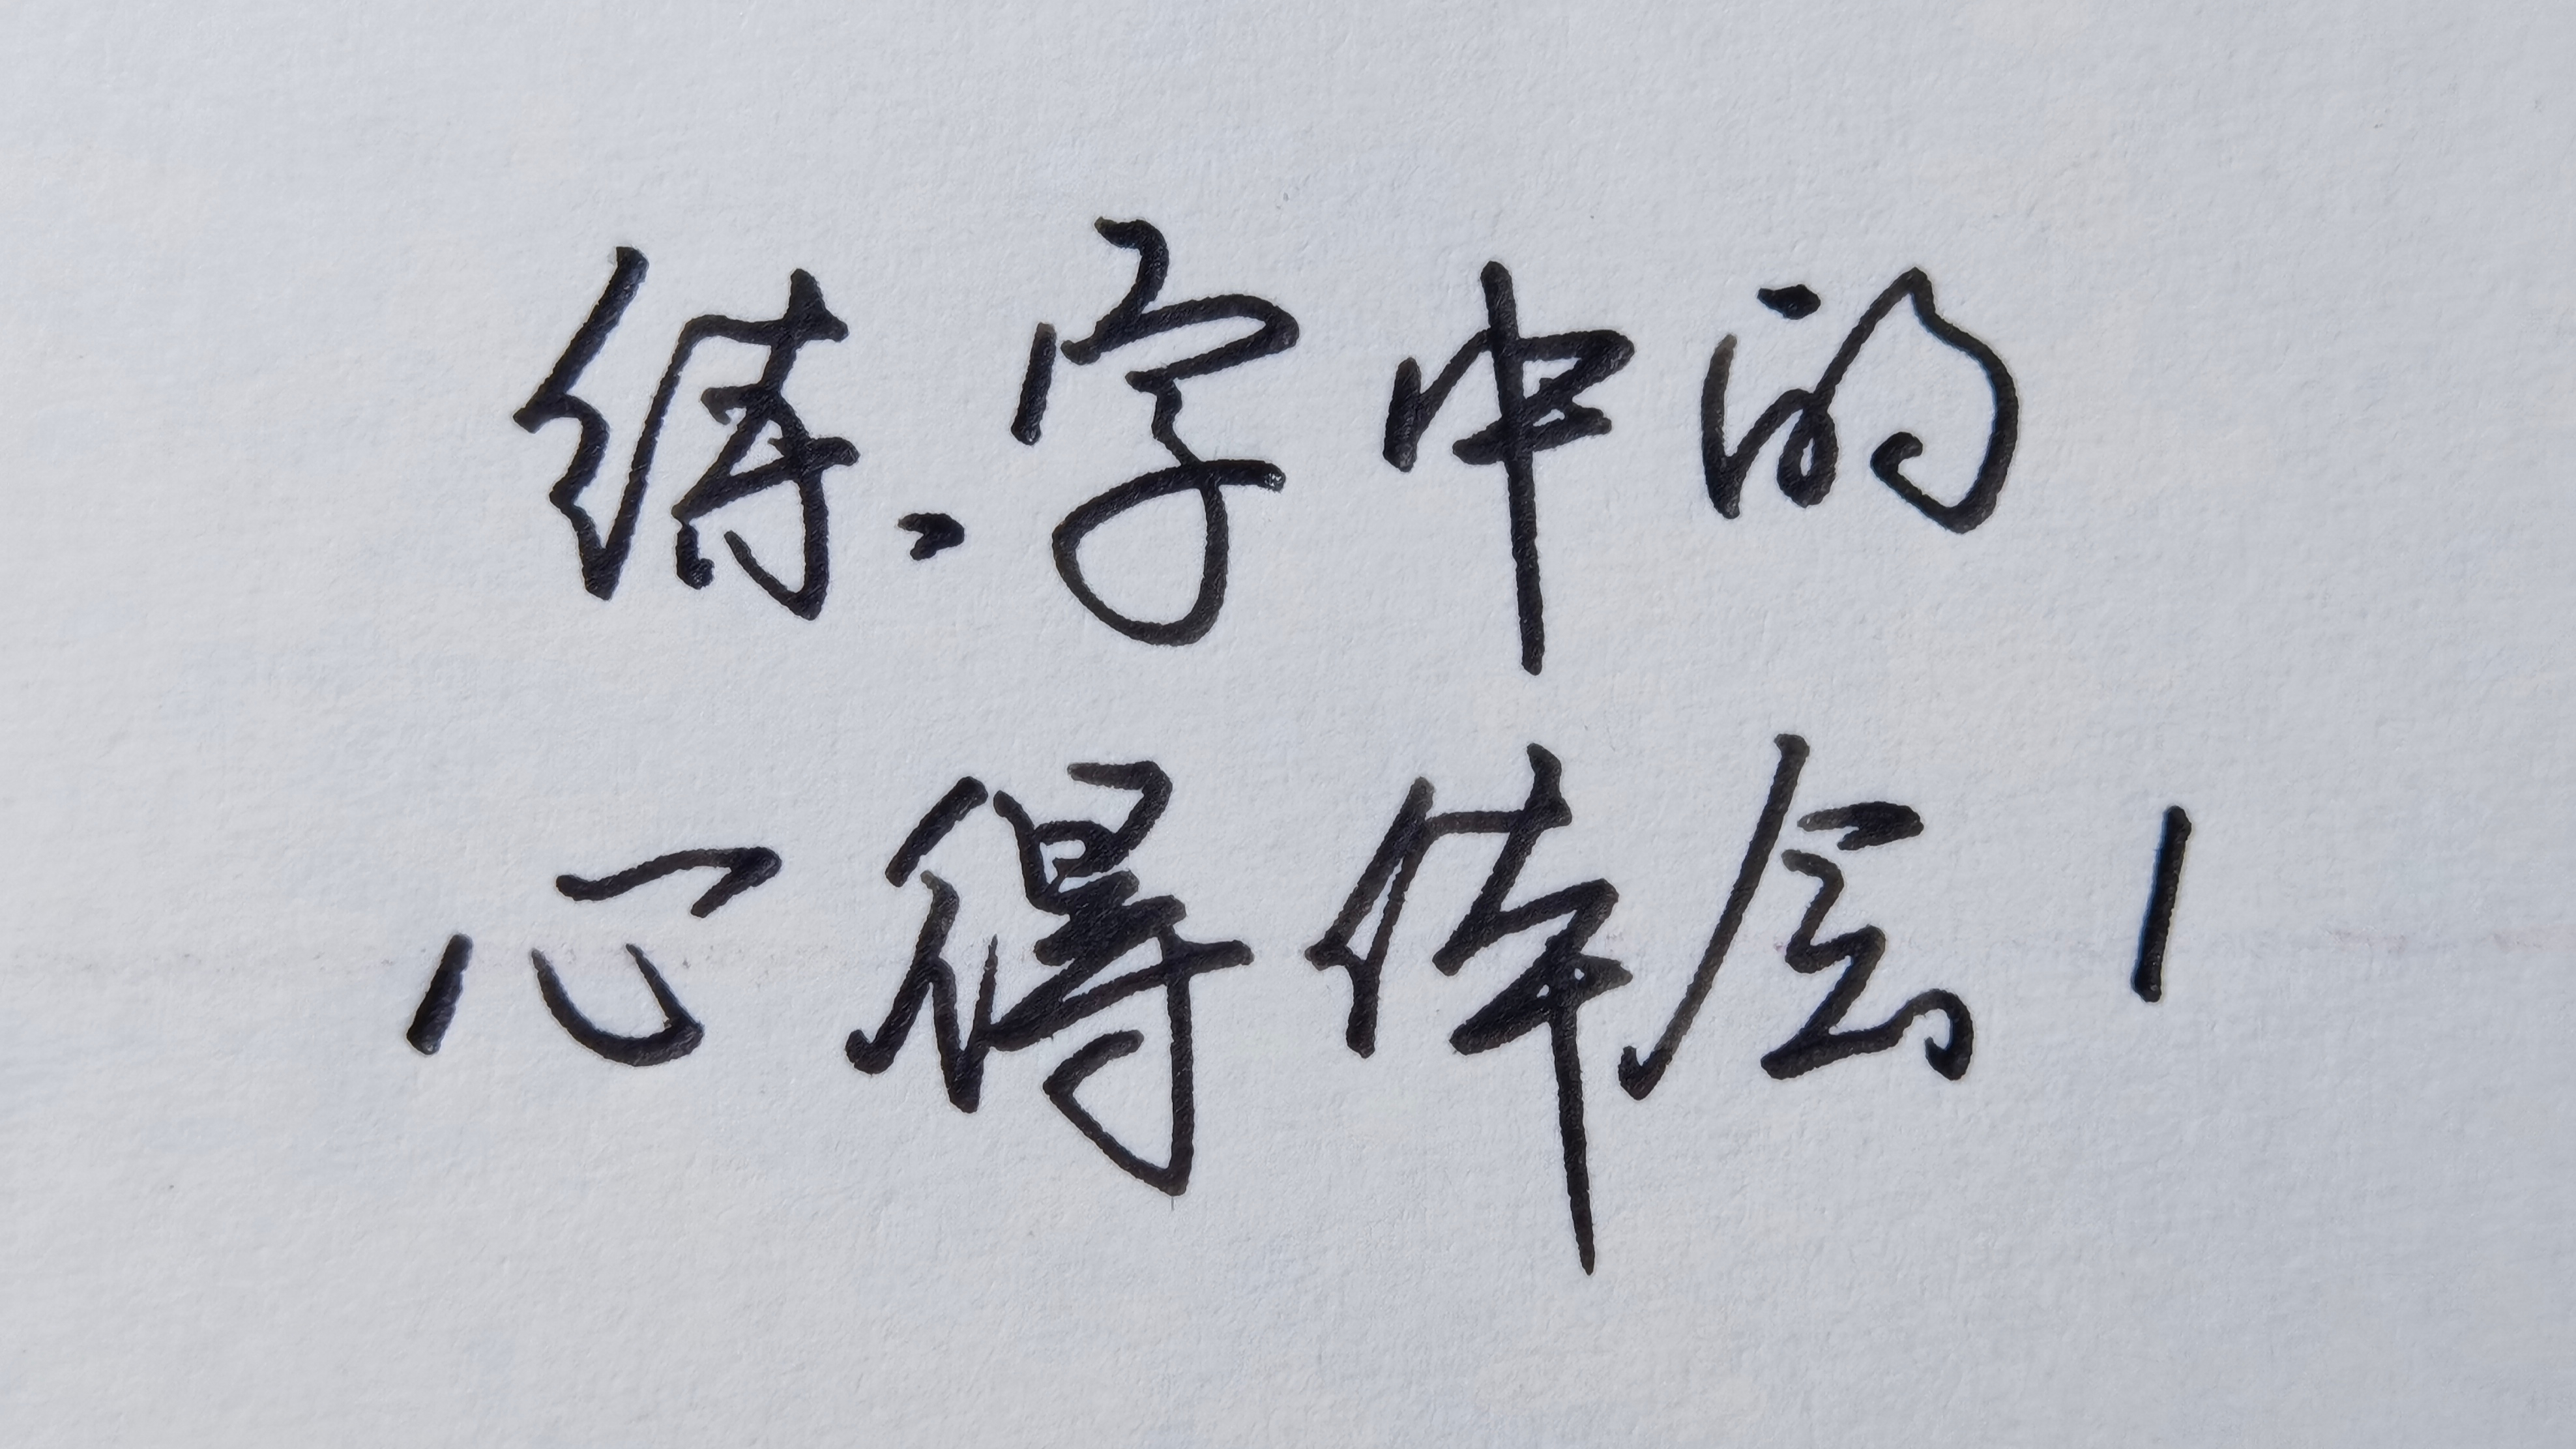 练字中的
心得体会1